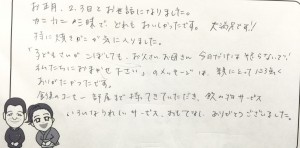 お正月、2、3日とお世話になりました。
カニカニ三昧で、どれもおいしかったです。大満足です!
特に焼きガニが気に入りました。
「子どもさんがこぼしても、お父さんお母さん 今日だけは怒らないで
私たちにおまかせ下さい」のメッセージは、親にとって心強く
ありがたかったです。
食後のコーヒー 部屋まで持ってきていただき、飲み物サービス
いろいろうれしいサービス、おもてなし、ありがとうございました。